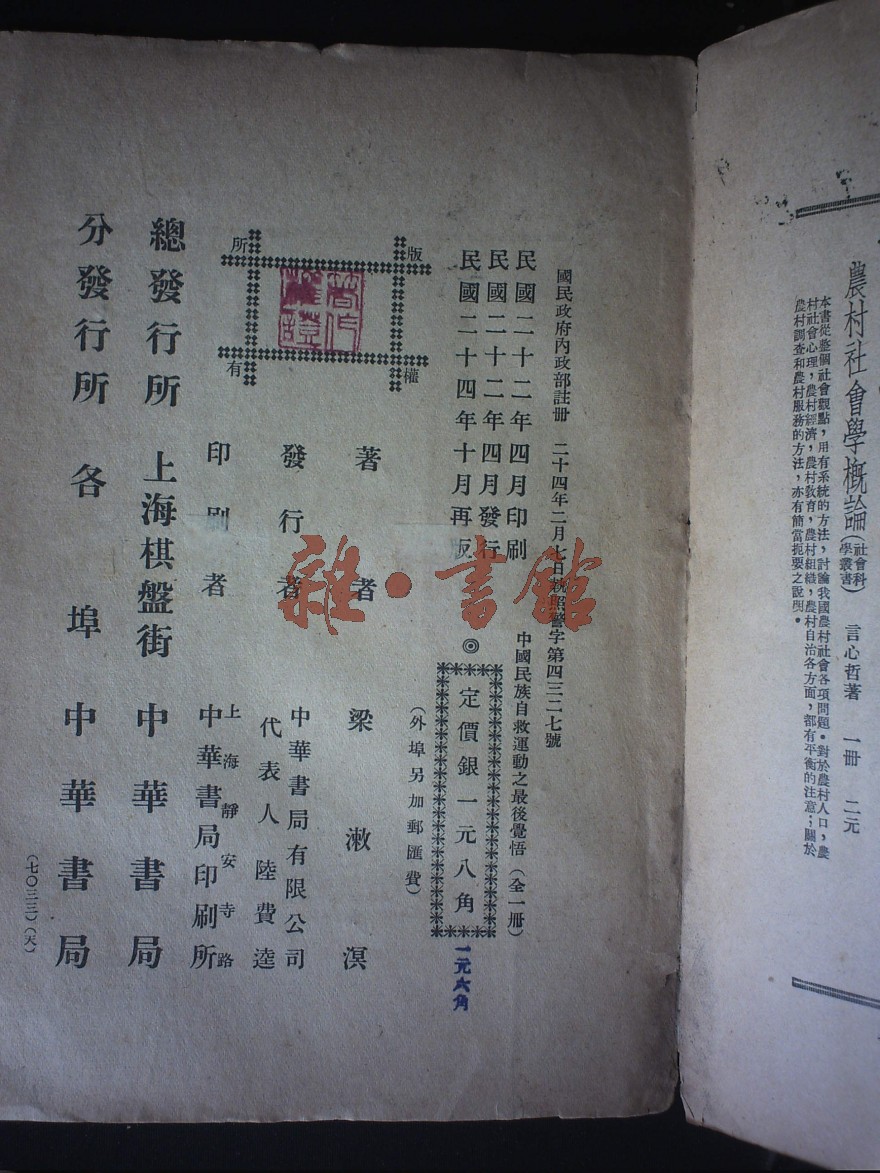 農村社會學概論（社會科學叢書）　言心哲著　一冊　二元
本書從整個社會觀點，用有系統的方法，討論我國農村社會各項問題。對於農村人口，農
村社會心理，農村經濟，農村教育，農村組織，農村自治各方面，都有平衡的注意；關於
農村調查和農村服務的方法，亦有簡當扼要之說明。
國民政府內政部註冊　二十四年二月七日執照警字第四三二七號
民國二十二年四月印刷
民國二十二年四月發行
民國二十四年十月再版
中國民族自救運動之最後覺悟（全一冊）
◎定價銀一元八角
一元六角
（外埠另加郵匯費）
版權所有
著作權證
著者　梁漱溟
發行者　中華書局有限公司
代表人　陸費逵
印刷者　上海靜安寺路
中華書局印刷所
總發行所　上海棋盤街　中華書局
分發行所　各埠　中華書局
（七〇三三）（天）
雜·書館